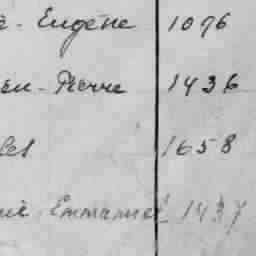 - Eugène 1076
- Pierre 1436
les 1658
Emmanuel 1437